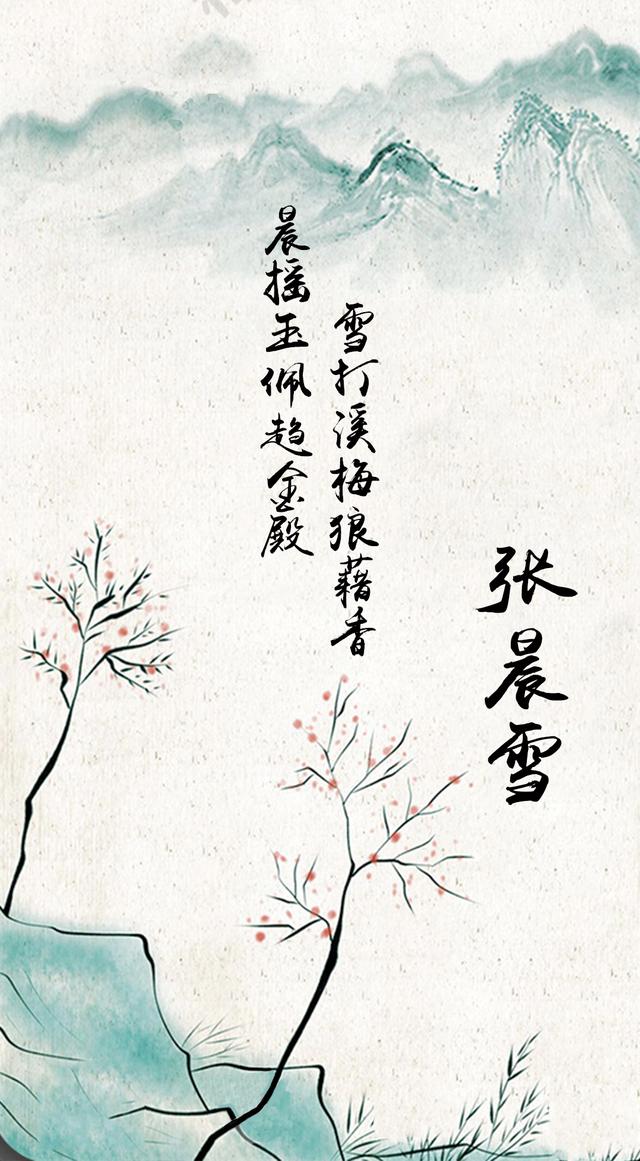 晨摇玉佩趋金殿
雪打溪梅狼藉香
张晨雪